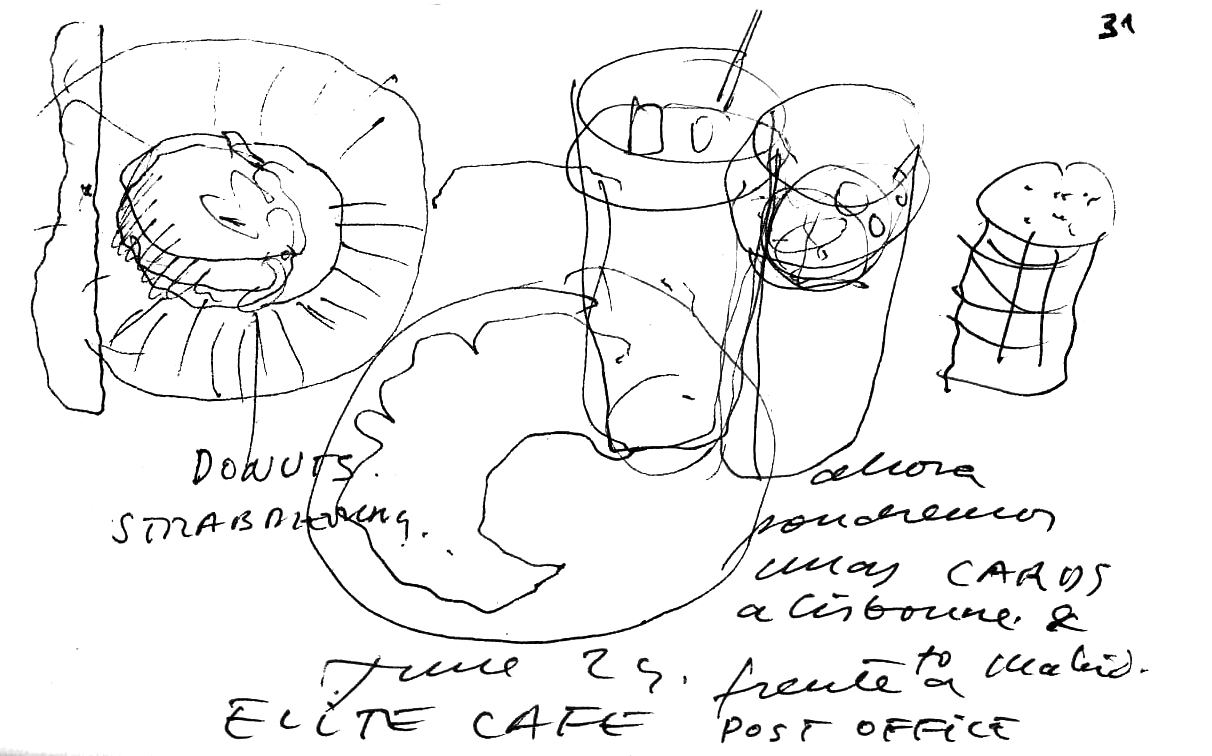 31
DONUTS.
ahora
pondremos
unas CARDS
a Lisbonne. &
to Madrid.
June 29.
frente a
ELITE CAFE
POST OFFICE